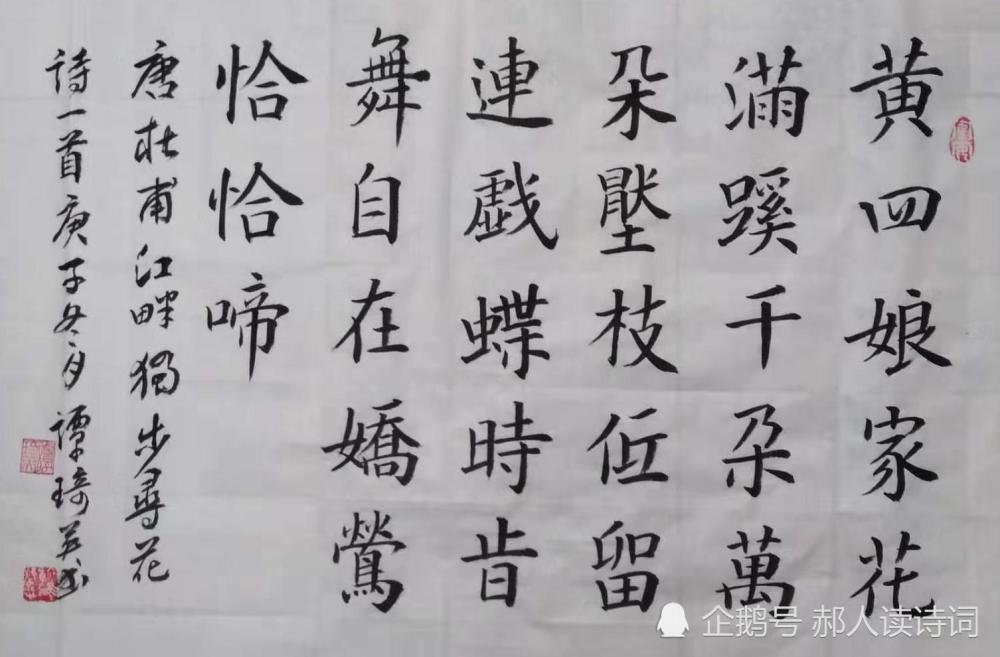 黄四娘家花
滿蹊千朵萬
朵壓枝低留
連戲蝶時旹
舞自在嬌鶯
恰恰啼
唐杜甫江畔獨步尋花
詩一首庚子冬月譚琦英书
企鹅号 郝人读诗词